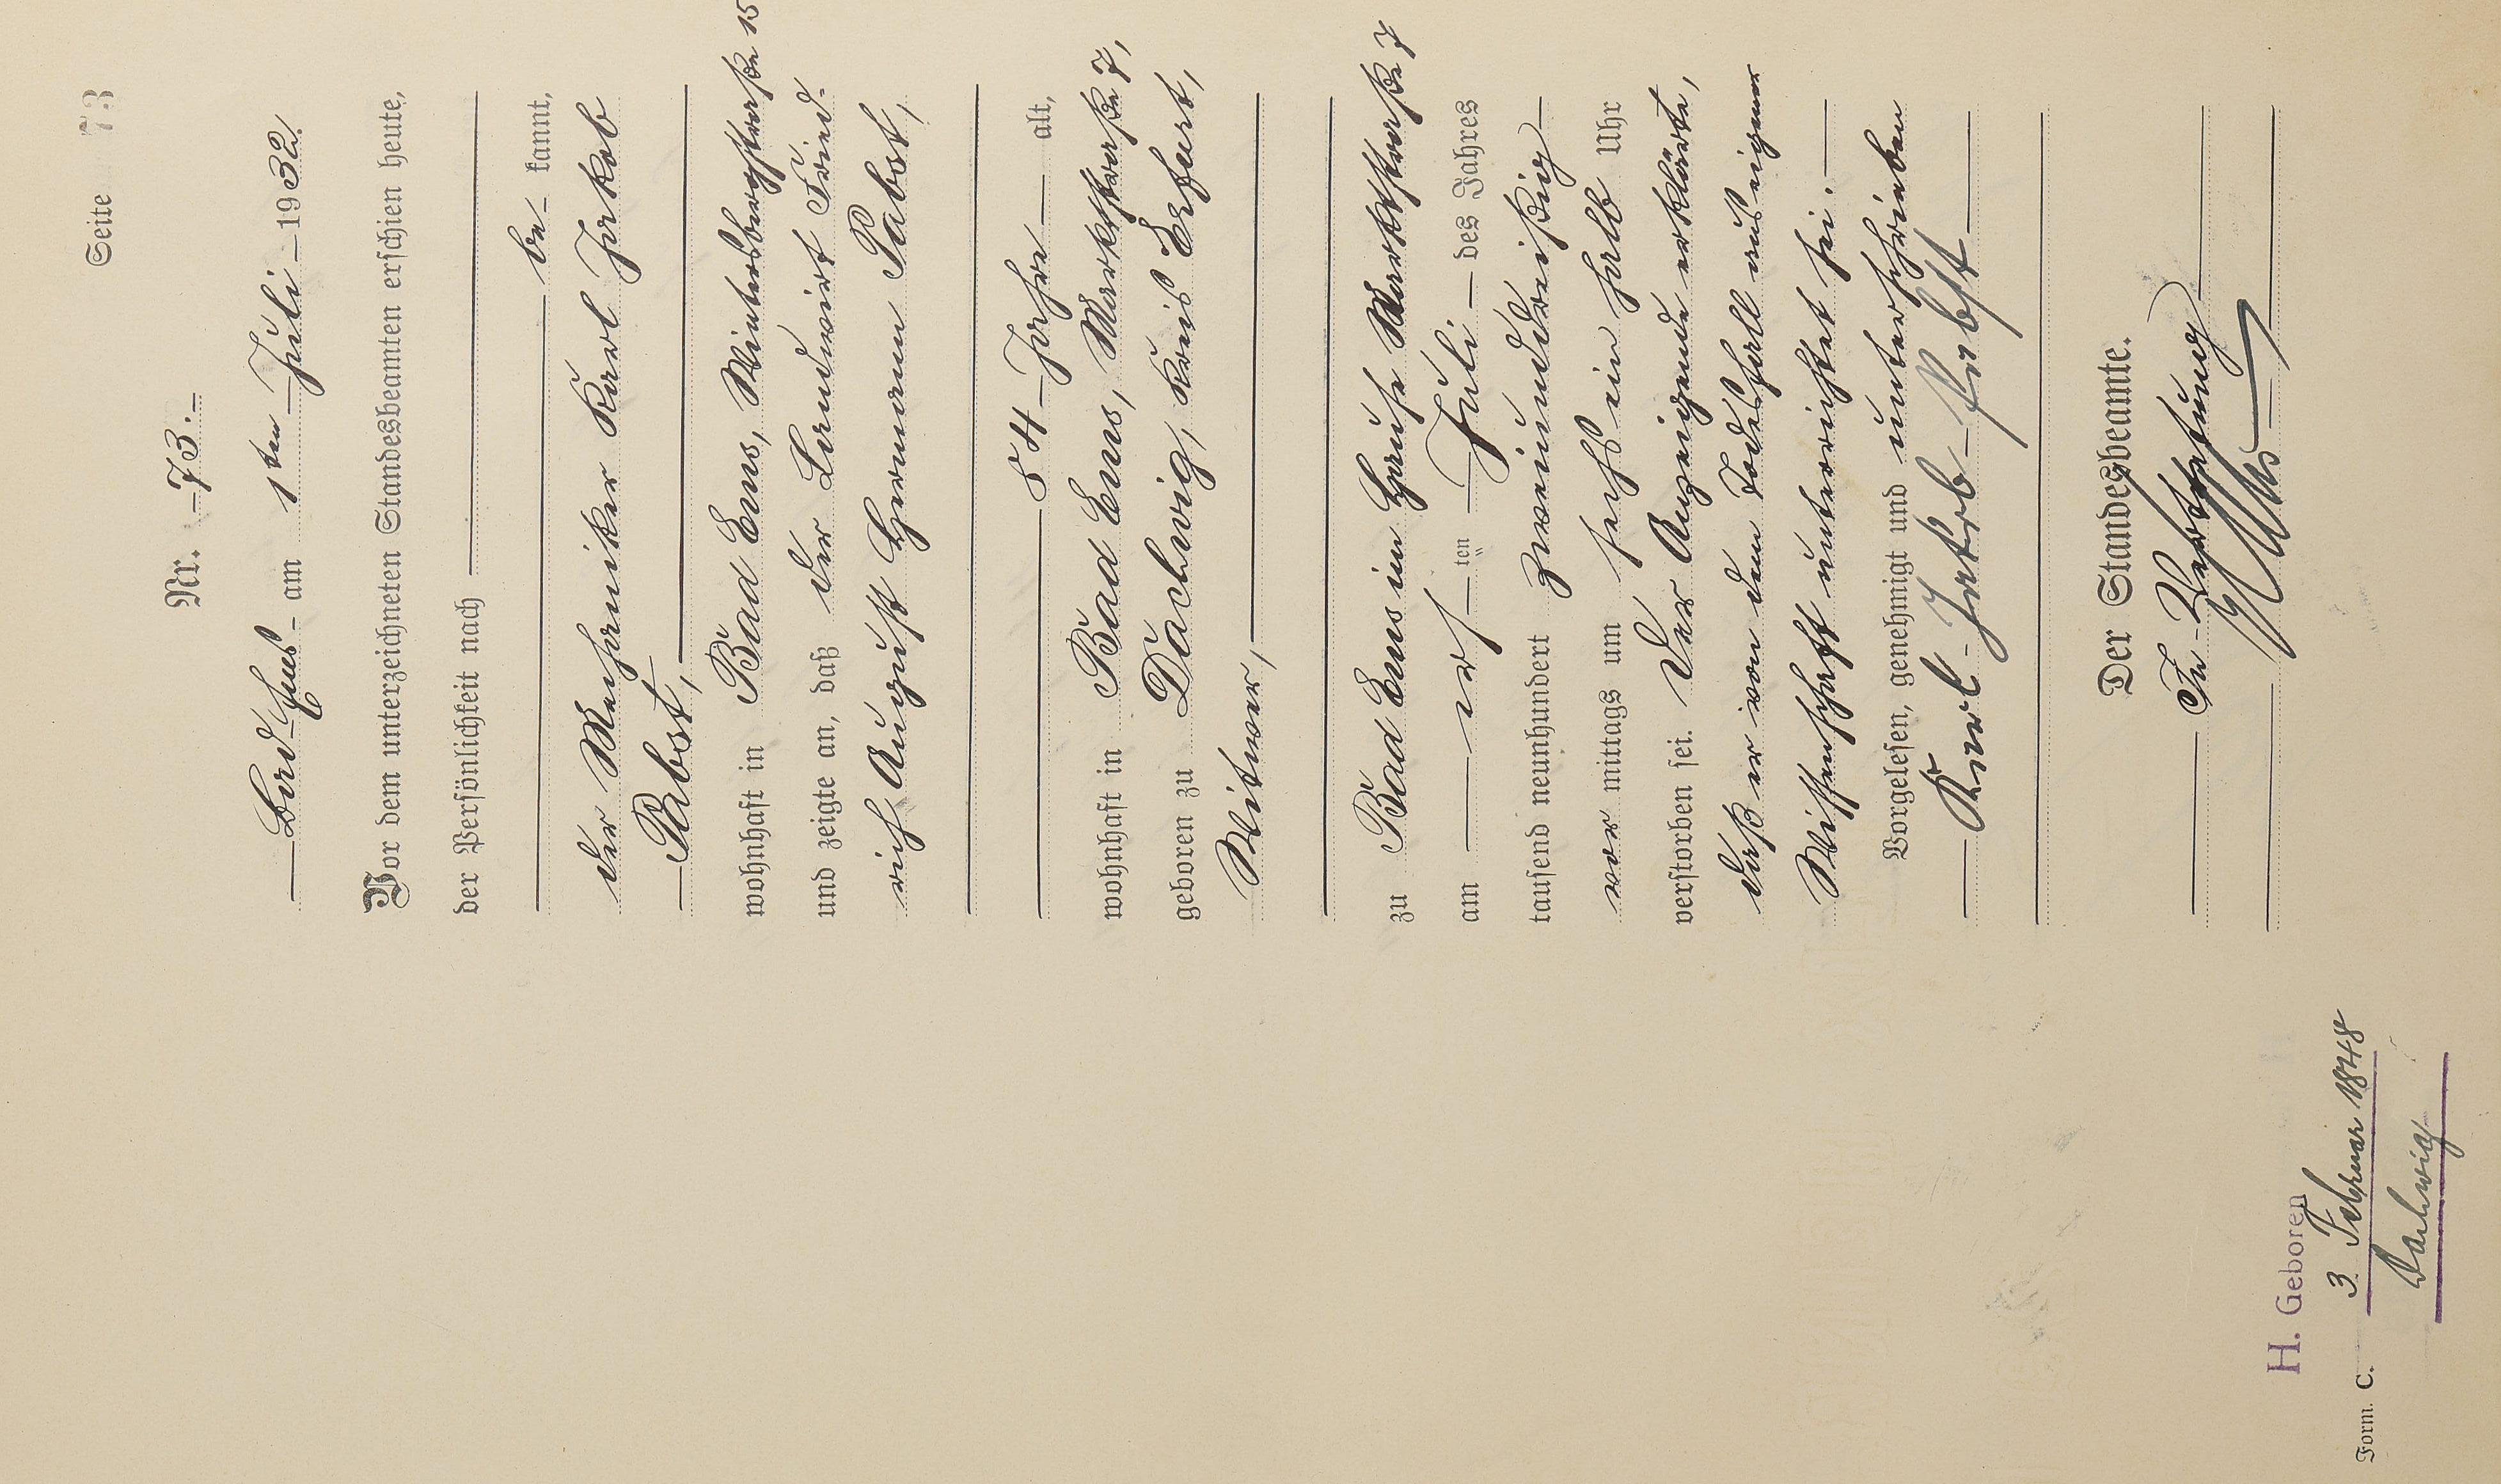 Seite 73
Nr. 73.
Bad Ems am 1ten Juli 1932.
Vor dem unterzeichneten Standesbeamten erschien heute,
der Persönlichkeit nach
be kannt,
der Mechaniker Karl Jakob
Pabst,
wohnhaft in Bad Ems, Wintersbergstraße 15
und zeigte an, daß der Landwirt Fried-
rich August Hermann Pabst,
84 Jahre alt,
wohnhaft in Bad Ems, Marktstraße 7,
geboren zu Dachwig, Kreis Erfurt,
Witwer,
zu Bad Ems im Hause Marktstraße 7
am ersten Juli des Jahres
tausend neunhundert zweiunddreißig
vor mittags um sechs ein halb Uhr
verstorben sei. Der Anzeigende erklärte,
daß er von dem Todesfall aus eigener
Wissenschaft unterrichtet sei.
Vorgelesen, genehmigt und unterschrieben
Karl Jakob Pabst
Der Standesbeamte.
In Vertretung
H. Geboren
3. Februar 1848
Dachwig
Form. C.